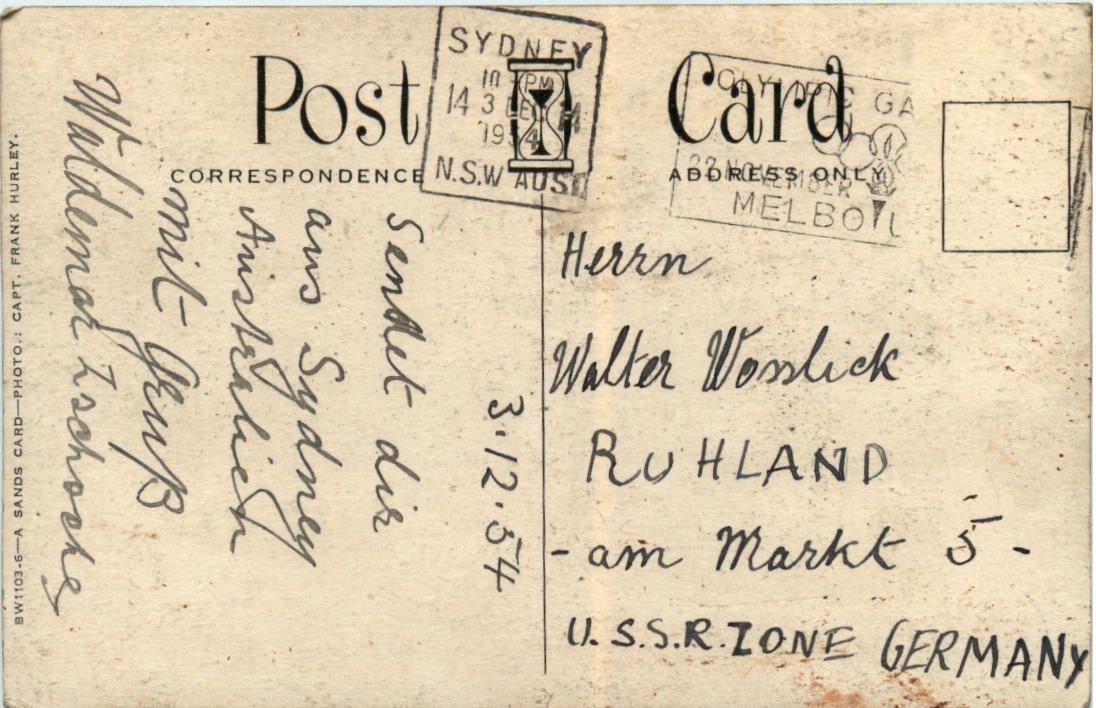 Post Card
CORRESPONDENCE
ADDRESS ONLY
SYDNEY
PM
14 3
19 4
N.S.W AUST
OLYMPIC GA
22 NOVEMBER
MELBOU
3.12.54
Sendet dir
aus Sydney
Australien
mit Gruß
Waldemar Zschoche
Herrn
Walter Wosslick
RUHLAND
- am Markt 5 -
U.S.S.R. ZONE GERMANY
BW1103-6—A SANDS CARD—PHOTO.: CAPT. FRANK HURLEY.